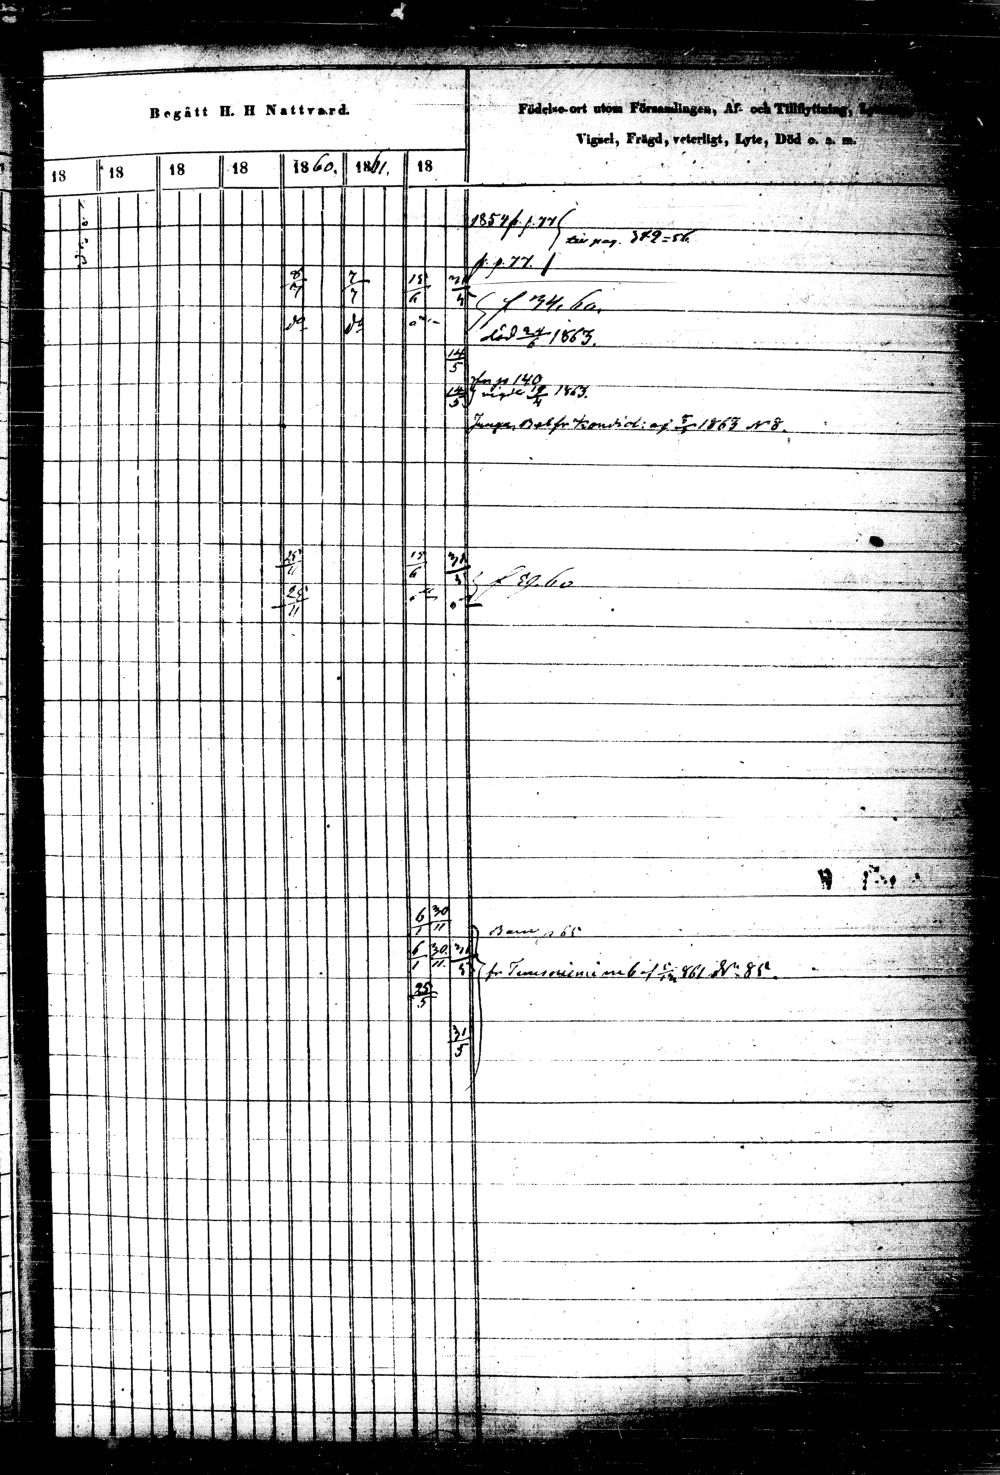 Begått H. H Nattvard.
Födelse-ort utom Församlingen, Af- och Tillflyttning,
Vigsel, Frägd, veterligt, Lyte, Död o. s. m.
18 18 18 18 1860. 1861. 18
1857 p. p. 77
pag. 372=56.
p. p. 77.
8/7 7/7 15/6 31/5
f 34. 60.
do do
död 24/6 1863.
14/5
fr p 140
14/5 vigde 19/4 1863.
1863 N 8.
25/11 15/6 31/5
f 59. 60
25/11
6/1 30/11
Barn p 65
6/1 30/11 31/5
fr 861 No 85.
25/5
31/5